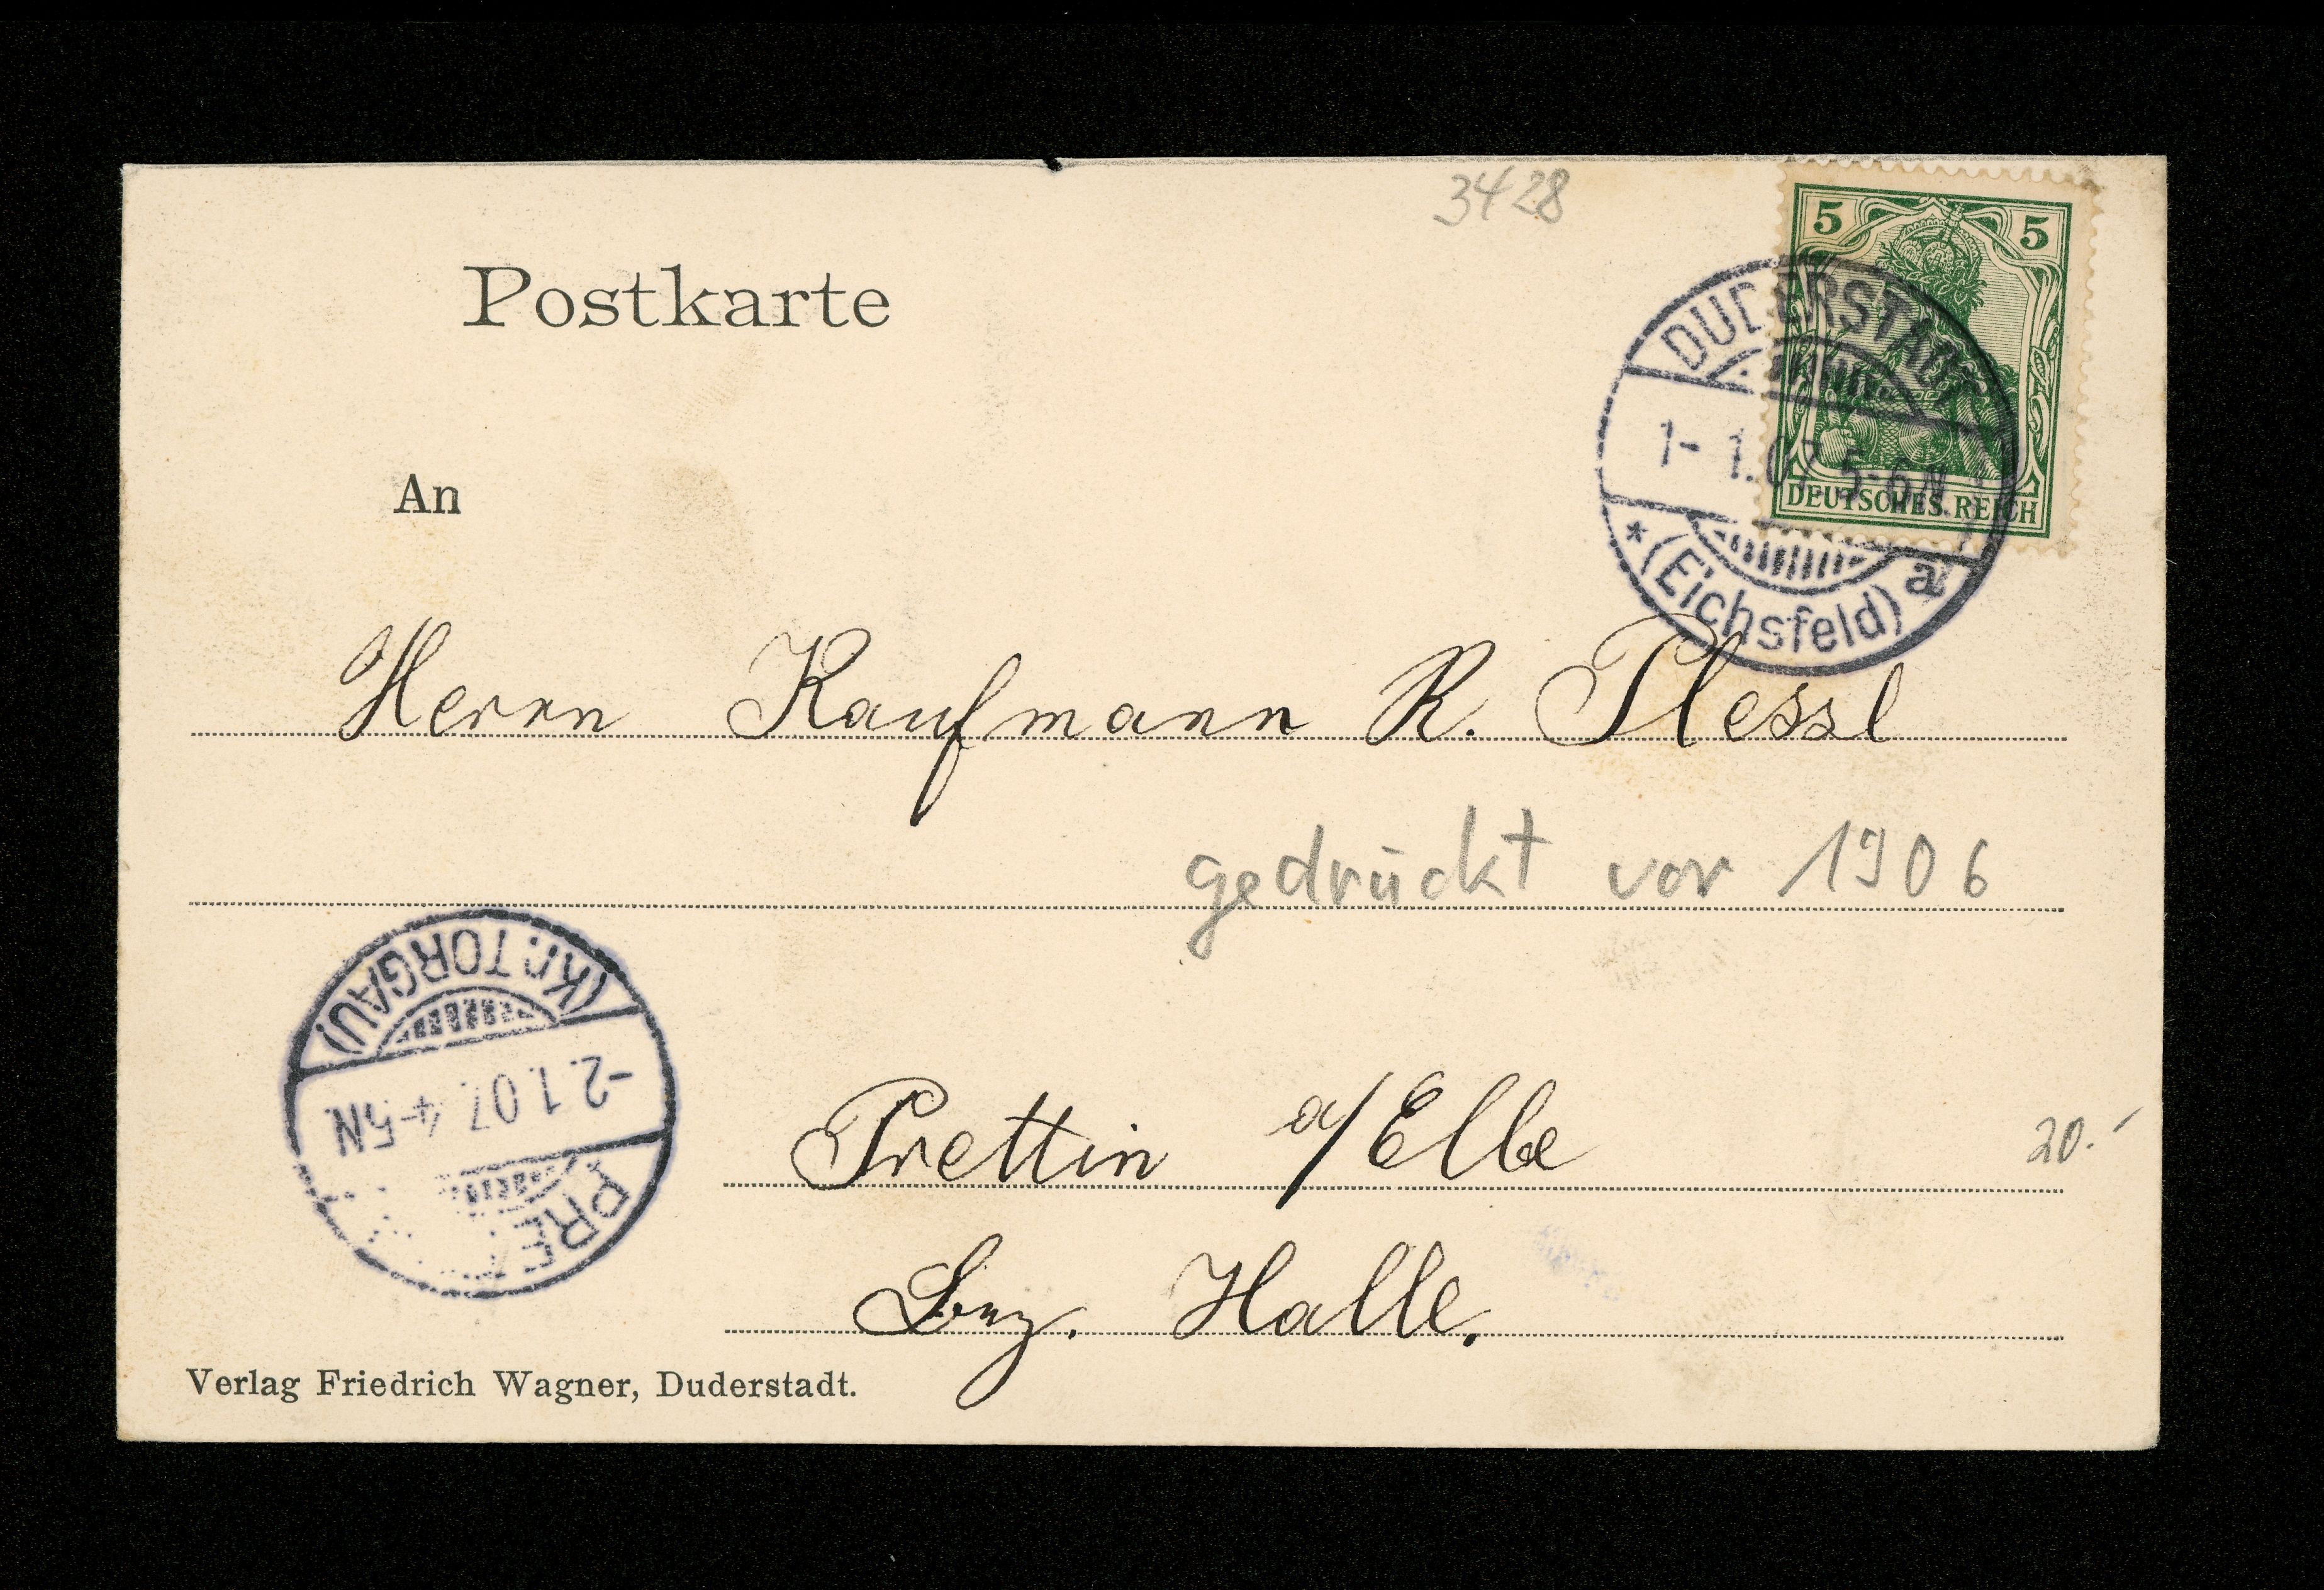 3428
5 5
DEUTSCHES REICH
DUDERSTADT
1-1.07 5-6N
* (Eichsfeld) a
Postkarte
An
Herrn Kaufmann R. Plessl
gedrückt vor 1906
(Kr. TORGAU)
-2.1.07. 4-5N
PRET
Prettin a/Elbe
20.-
Bez. Halle.
Verlag Friedrich Wagner, Duderstadt.